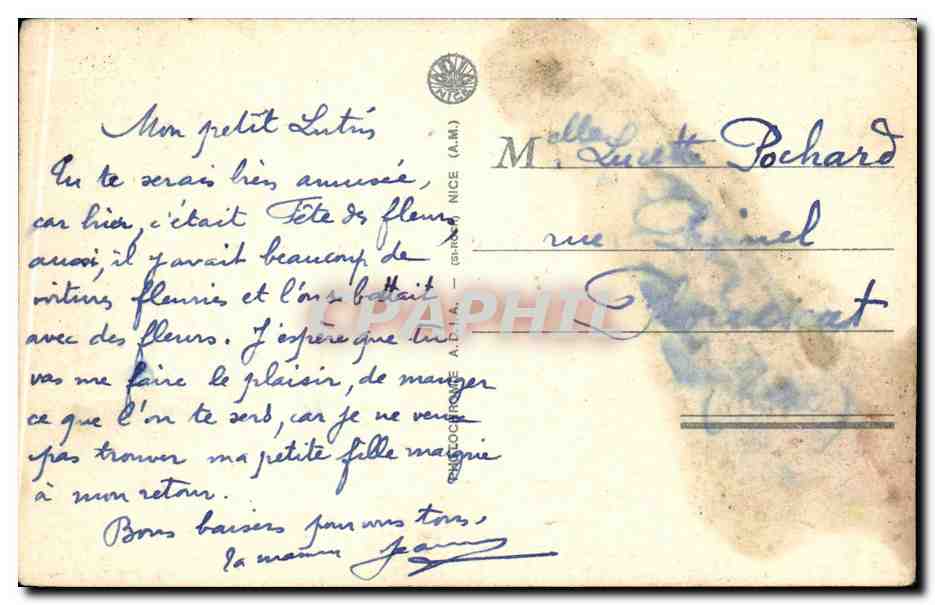 Mon petit Lutin
Tu te serais bien amusée,
car hier, c'était Fête des fleurs
aussi, il y avait beaucoup de
voitures fleuries et l'on s'battait
avec des fleurs. J'espère que tu
vas me faire le plaisir, de manger
ce que l'on te sers, car je ne veux
pas trouver ma petite fille maigrie
à mon retour.
Bons baisers pour vous tous,
ta maman Jeanne
NICE
PHOTOCHROMIE A.D.I.A. — (St-ROCH) NICE (A.M.)
Melle Lucette Pochard
rue
CPAPHIL